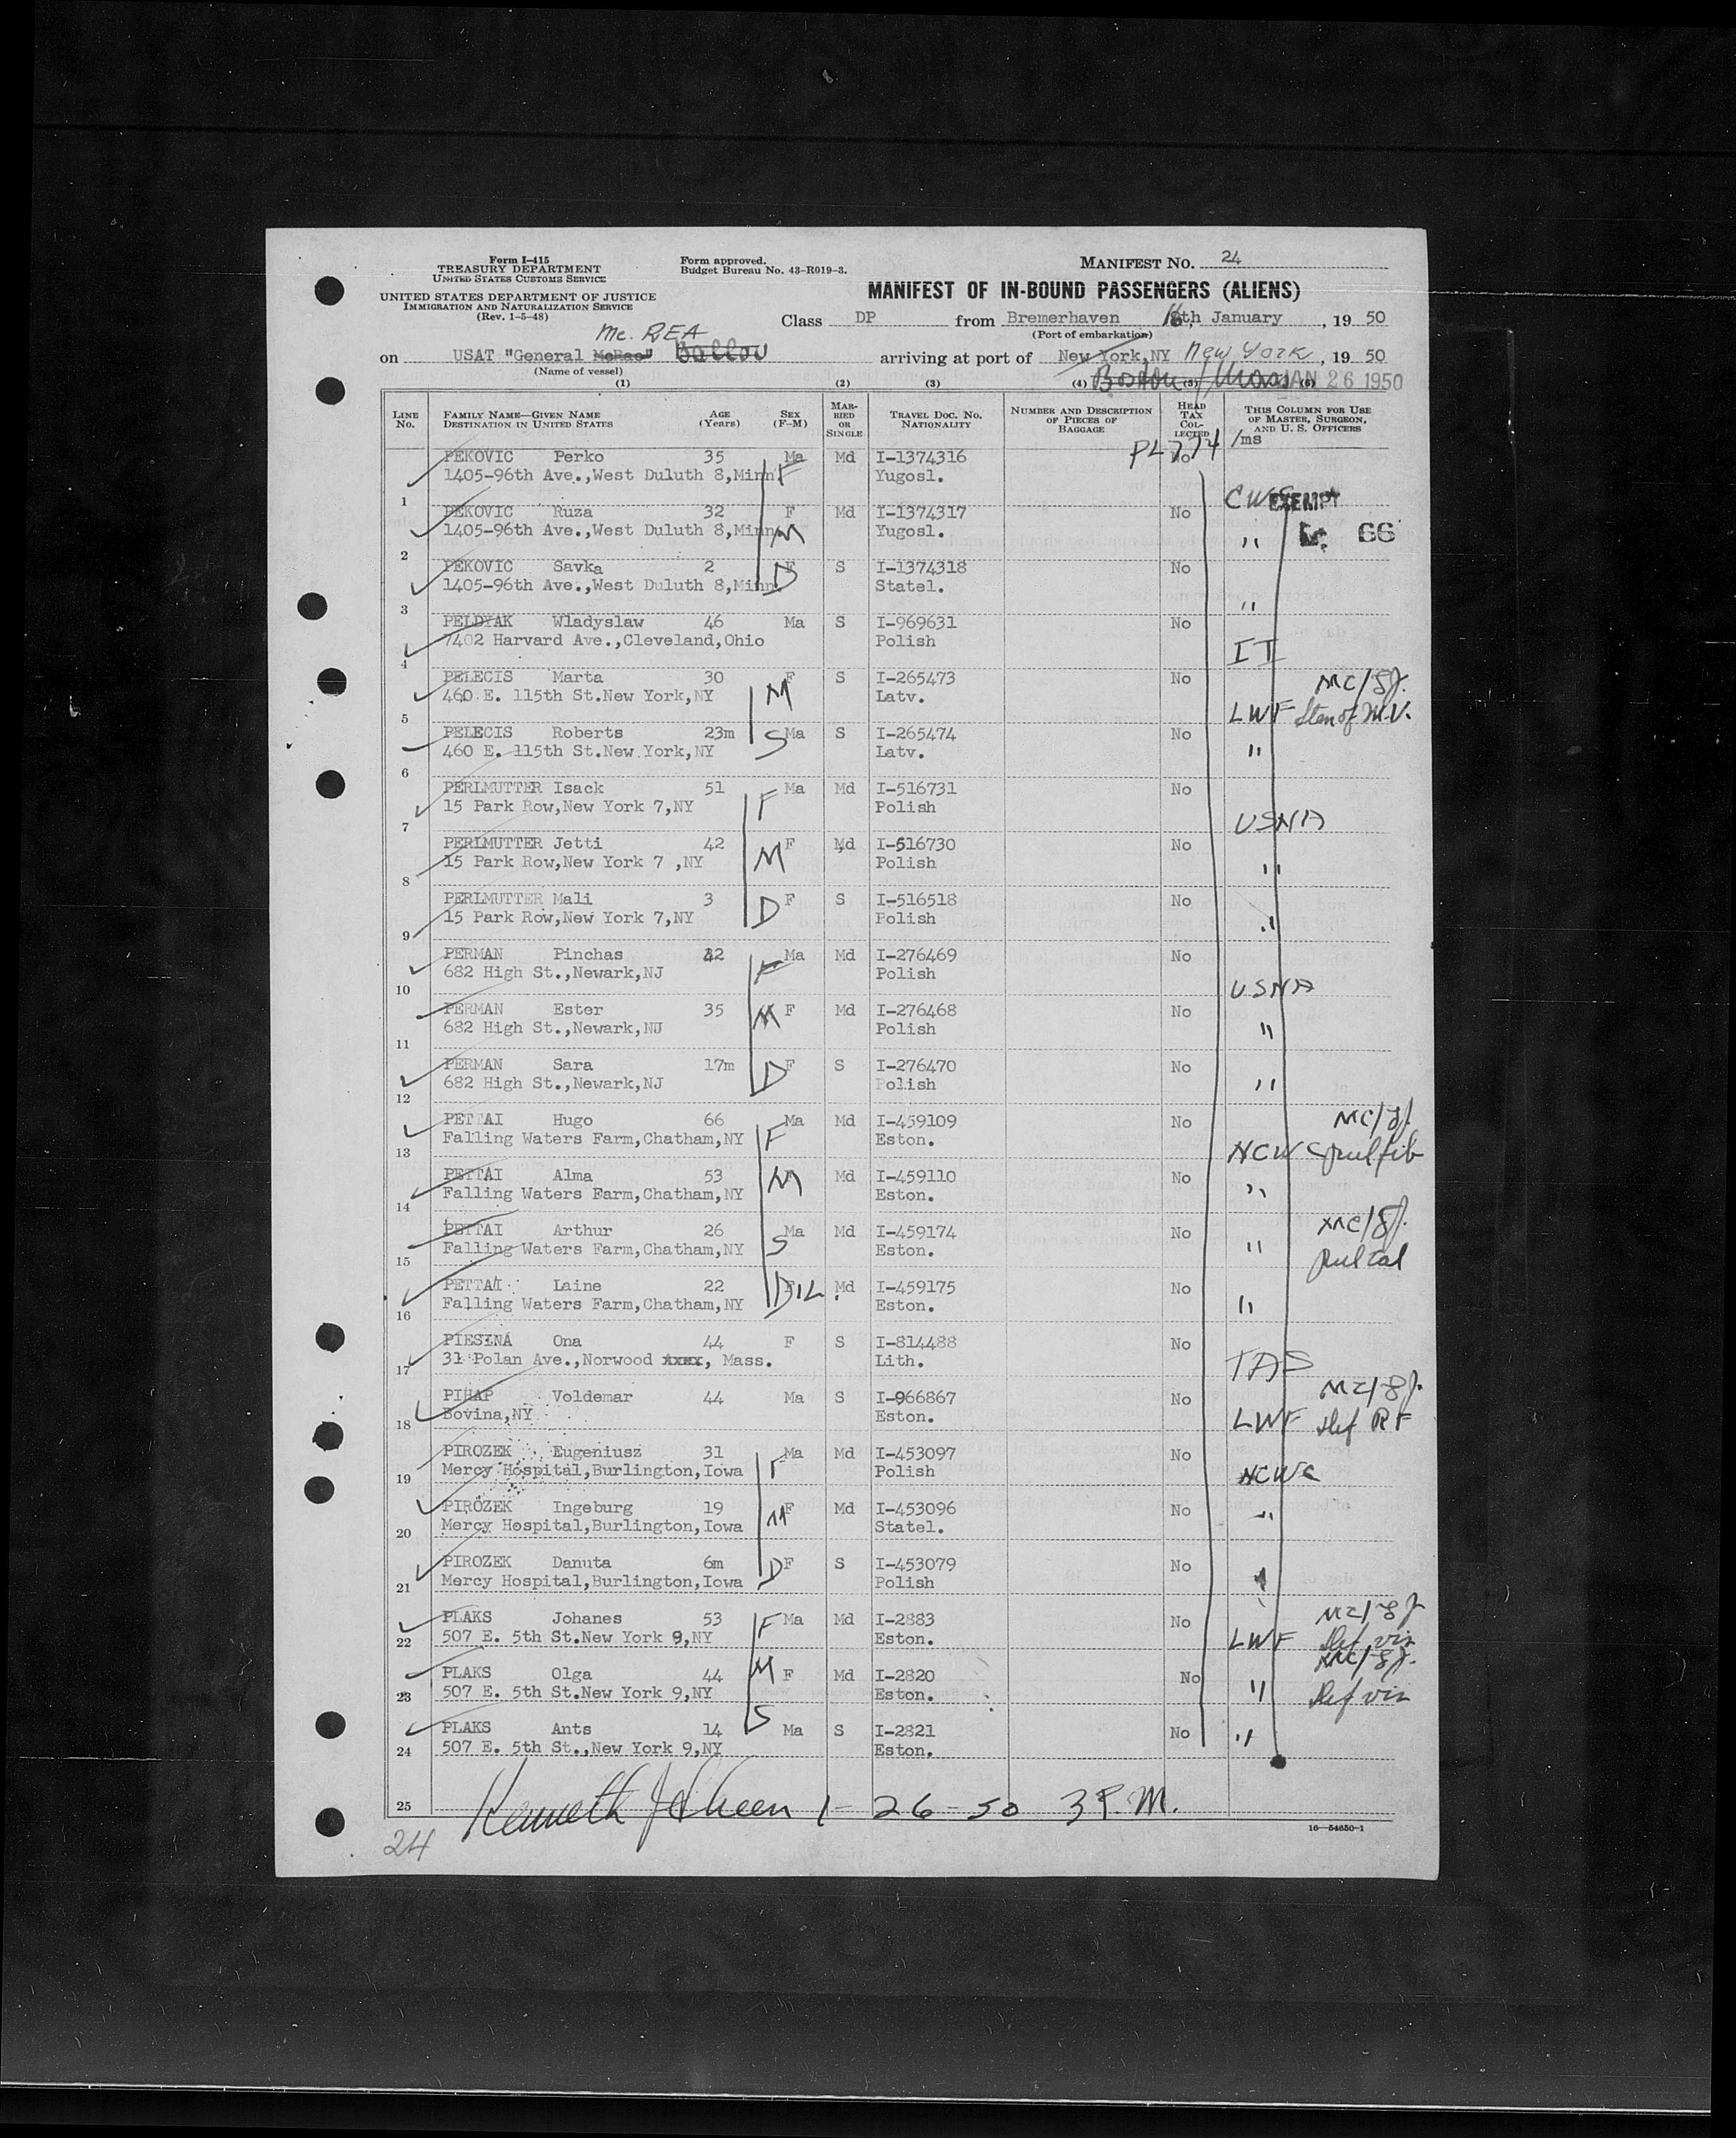 Form I-415
TREASURY DEPARTMENT
UNITED STATES CUSTOMS SERVICE
UNITED STATES DEPARTMENT OF JUSTICE
IMMIGRATION AND NATURALIZATION SERVICE
(Rev. 1-5-48)
Form approved.
Budget Bureau No. 43-R019-3.
MANIFEST NO. 24
MANIFEST OF IN-BOUND PASSENGERS (ALIENS)
Class DP from Bremerhaven 16th, January, 19 50
(Port of embarkation)
Mc. REA
on USAT "General McRae" Ballou arriving at port of New York,NY New York, 19 50
(Name of vessel)
Boston, Mass JAN 26 1950
(1) (2) (3) (4) (5) (6)
LINE No. FAMILY NAME—GIVEN NAME DESTINATION IN UNITED STATES AGE (Years) SEX (F-M) MARRIED OR SINGLE TRAVEL DOC. NO. NATIONALITY NUMBER AND DESCRIPTION OF PIECES OF BAGGAGE HEAD TAX COLLECTED THIS COLUMN FOR USE OF MASTER, SURGEON, AND U. S. OFFICERS
PL 774 /ms
PEKOVIC Perko 35 Ma Md I-1374316 No
1405-96th Ave.,West Duluth 8,Minn. F Yugosl.
1 CWS EXEMPT
PEKOVIC Ruza 32 F Md I-1374317 No
1405-96th Ave.,West Duluth 8,Minn M Yugosl. " 66
2
PEKOVIC Savka 2 F S I-1374318 No
1405-96th Ave.,West Duluth 8,Minn. D Statel.
3 "
PELDYAK Wladyslaw 46 Ma S I-969631 No
7402 Harvard Ave.,Cleveland,Ohio Polish II
4
PELECIS Marta 30 F S I-265473 No
460 E. 115th St.New York,NY M Latv.
5 LWF
PELECIS Roberts 23m Ma S I-265474 No
460 E. 115th St.New York,NY S Latv. "
6
PERLMUTTER Isack 51 Ma Md I-516731 No
15 Park Row,New York 7,NY F Polish
7 USNA
PERLMUTTER Jetti 42 F Md I-516730 No
15 Park Row,New York 7 ,NY M Polish "
8
PERLMUTTER Mali 3 F S I-516518 No
15 Park Row,New York 7,NY D Polish "
9
PERMAN Pinchas Ma Md I-276469 No
682 High St.,Newark,NJ F Polish
10 USNA
PERMAN Ester 35 F Md I-276468 No
682 High St.,Newark,NJ M Polish "
11
PERMAN Sara 17m F S I-276470 No
682 High St.,Newark,NJ D Polish "
12
PETTAI Hugo 66 Ma Md I-459109 No
Falling Waters Farm,Chatham,NY F Eston.
13 NCWC
PETTAI Alma 53 Md I-459110 No
Falling Waters Farm,Chatham,NY M Eston. "
14
PETTAI Arthur 26 Ma Md I-459174 No
Falling Waters Farm,Chatham,NY S Eston. "
15
PETTAI Laine 22 F Md I-459175 No
Falling Waters Farm,Chatham,NY DIL Eston. "
16
PIESINA Ona 44 F S I-814488 No
31 Polan Ave.,Norwood xxxx, Mass. Lith.
17 TAS
PIHAP Voldemar 44 Ma S I-966867 No
Bovina,NY Eston.
18 LWF
PIROZEK Eugeniusz 31 Ma Md I-453097 No
Mercy Hospital,Burlington,Iowa F Polish NCWC
19
PIROZEK Ingeburg 19 F Md I-453096 No
Mercy Hospital,Burlington,Iowa M Statel. "
20
PIROZEK Danuta 6m F S I-453079 No
Mercy Hospital,Burlington,Iowa D Polish "
21
PLAKS Johanes 53 Ma Md I-2883 No
507 E. 5th St.New York 9,NY F Eston. LWF
22
PLAKS Olga 44 F Md I-2820 No
507 E. 5th St.New York 9,NY M Eston. "
23
PLAKS Ants 14 Ma S I-2821 No
507 E. 5th St.,New York 9,NY S Eston. "
24
25 1-26-50 3 P.M.
24
16—54650-1